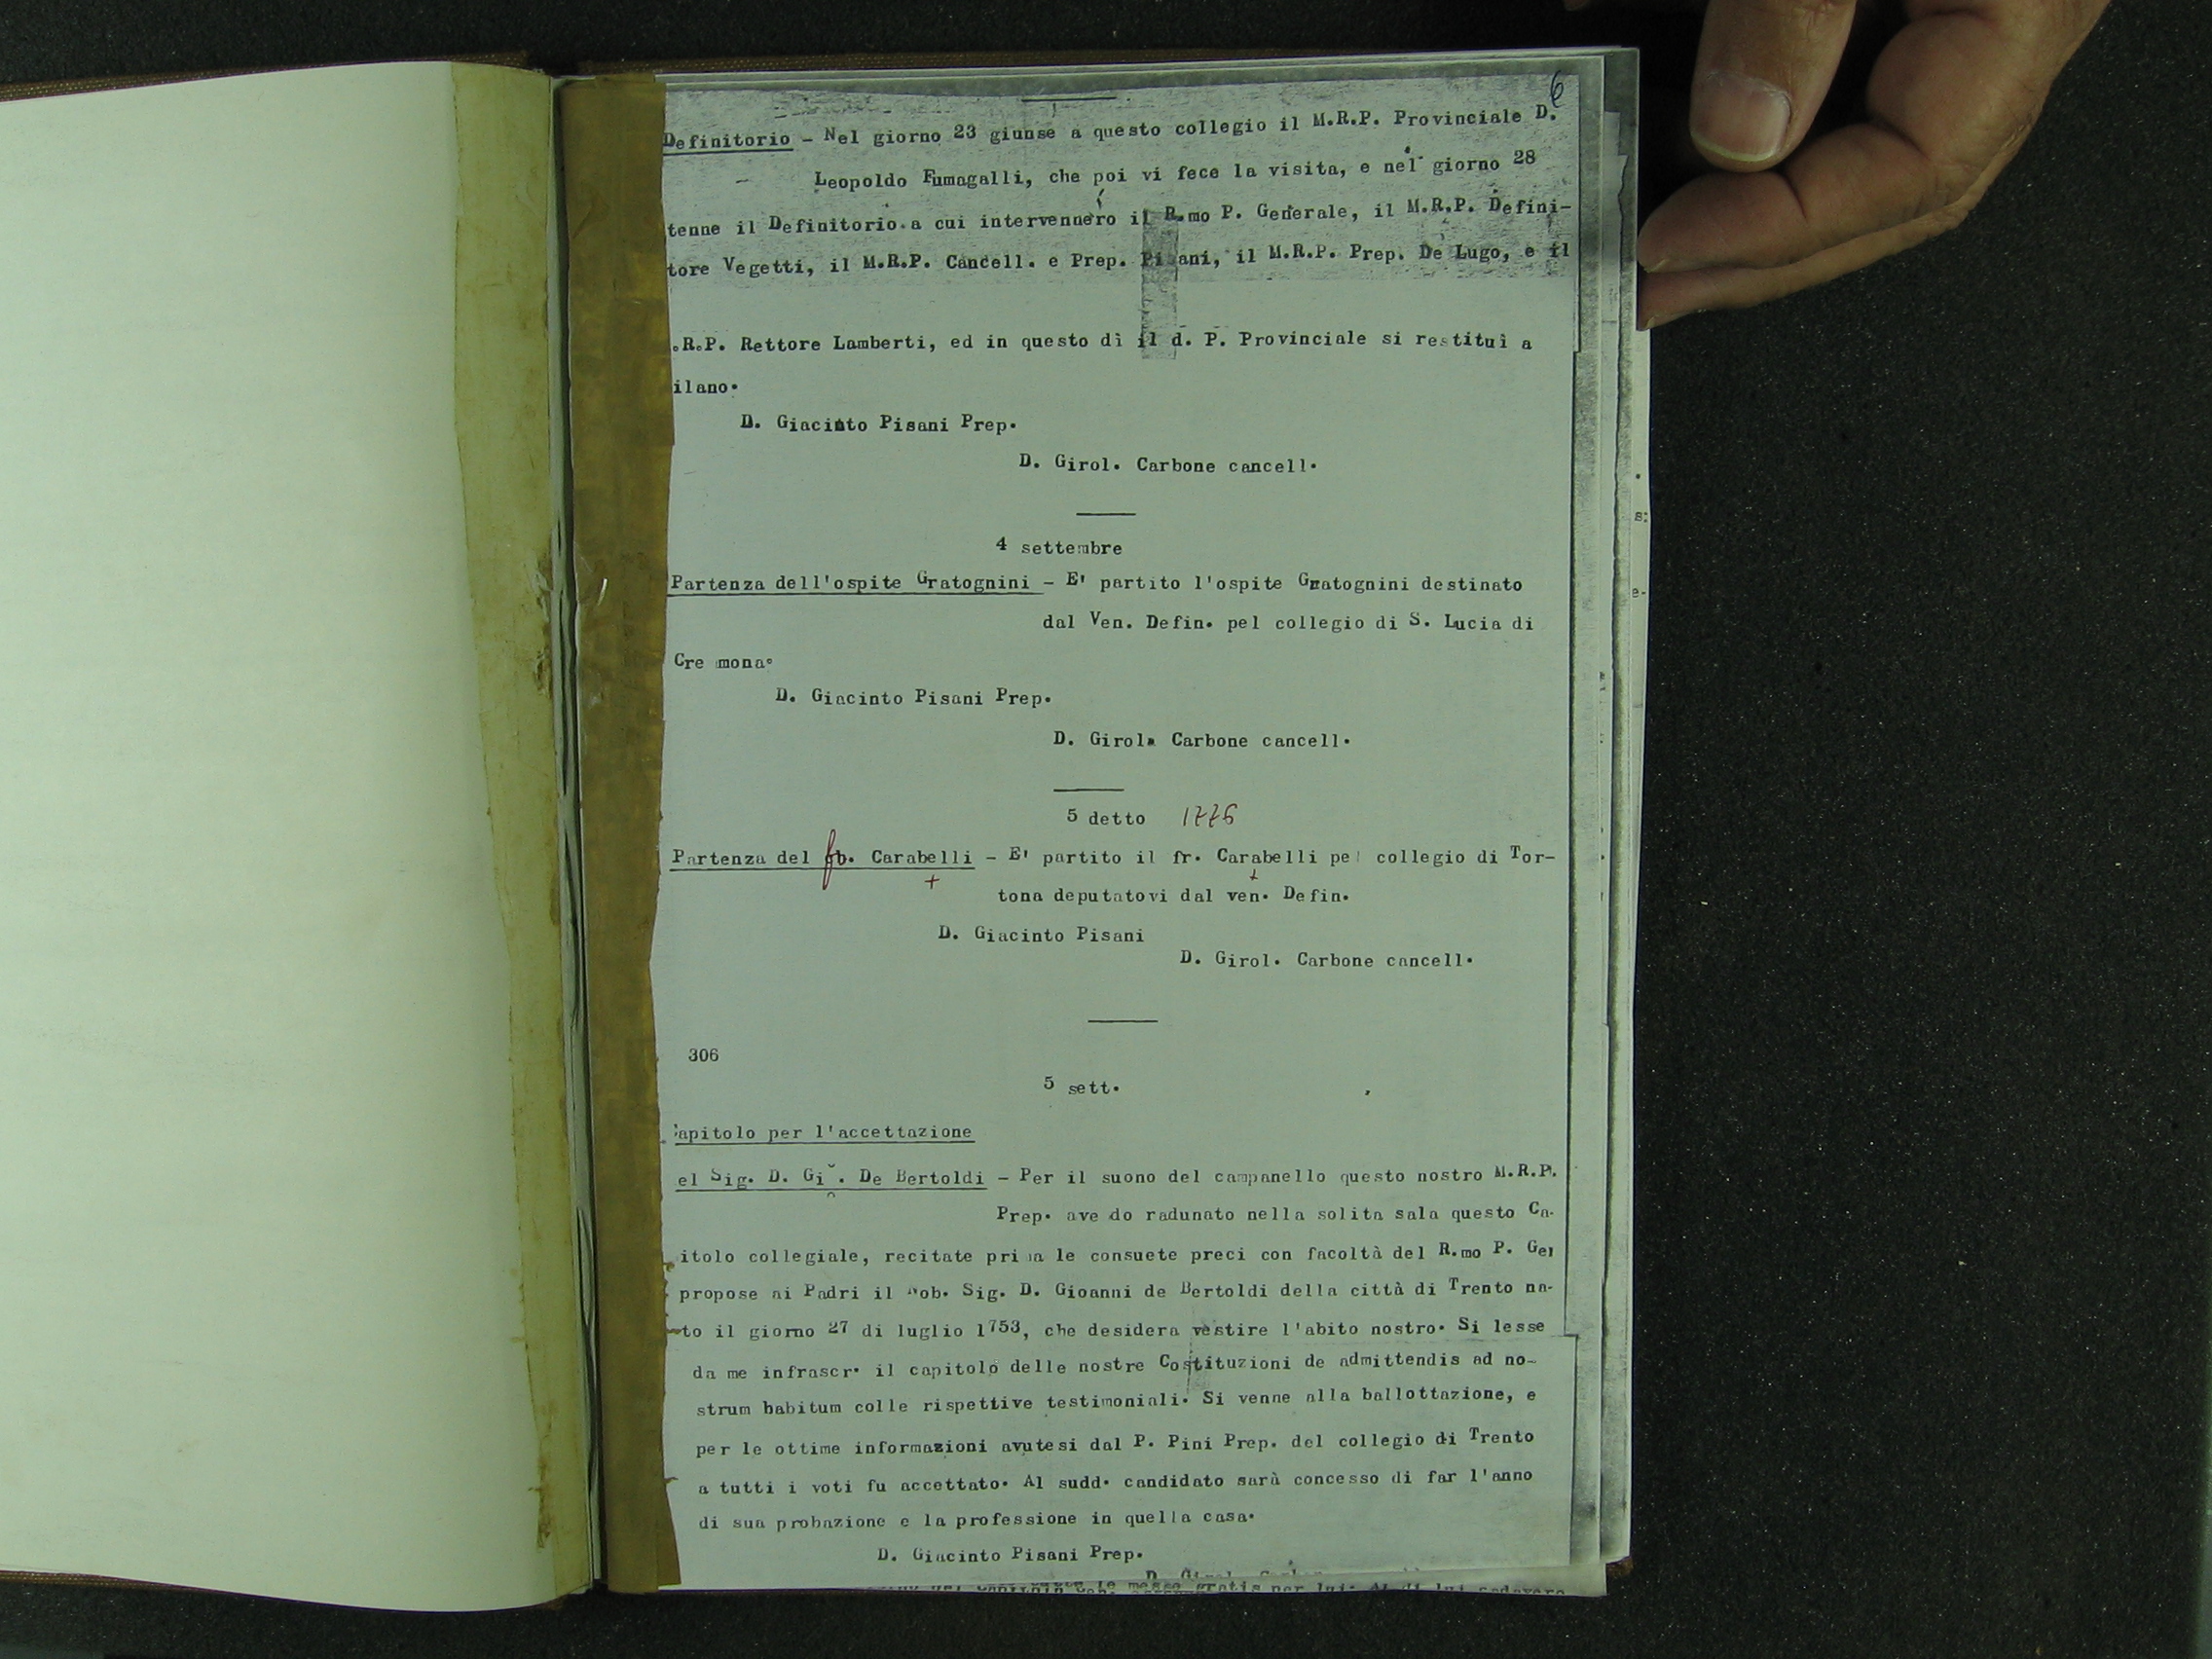 6
Definitorio - Nel giorno 23 giunse a questo collegio il M.R.P. Provinciale D.
Leopoldo Fumagalli, che poi vi fece la visita, e nel giorno 28
tenne il Definitorio a cui intervennero il R.mo P. Generale, il M.R.P. Defini-
tore Vegetti, il M.R.P. Cancell. e Prep. Pisani, il M.R.P. Prep. De Lugo, e il
.R.P. Rettore Lamberti, ed in questo dì il d. P. Provinciale si restituì a
ilano.
D. Giacinto Pisani Prep.
D. Girol. Carbone cancell.
4 settembre
Partenza dell'ospite Gratognini - E' partito l'ospite Gratognini destinato
dal Ven. Defin. pel collegio di S. Lucia di
Cremona.
D. Giacinto Pisani Prep.
D. Girol. Carbone cancell.
5 detto 1776
Partenza del fr. Carabelli - E' partito il fr. Carabelli pel collegio di Tor-
tona deputatovi dal ven. Defin.
D. Giacinto Pisani
D. Girol. Carbone cancell.
306
5 sett.
apitolo per l'accettazione
el Sig. D. Gi . De Bertoldi - Per il suono del campanello questo nostro M.R.P.
Prep. ave do radunato nella solita sala questo Ca-
itolo collegiale, recitate prima le consuete preci con facoltà del R.mo P. Gen
propose ai Padri il Nob. Sig. D. Gioanni de Bertoldi della città di Trento na-
to il giorno 27 di luglio 1753, che desidera vestire l'abito nostro. Si lesse
da me infrascr. il capitolo delle nostre Costituzioni de admittendis ad no-
strum habitum colle rispettive testimoniali. Si venne alla ballottazione, e
per le ottime informazioni avutesi dal P. Pini Prep. del collegio di Trento
a tutti i voti fu accettato. Al sudd. candidato sarà concesso di far l'anno
di sua probazione e la professione in quella casa.
D. Giacinto Pisani Prep.